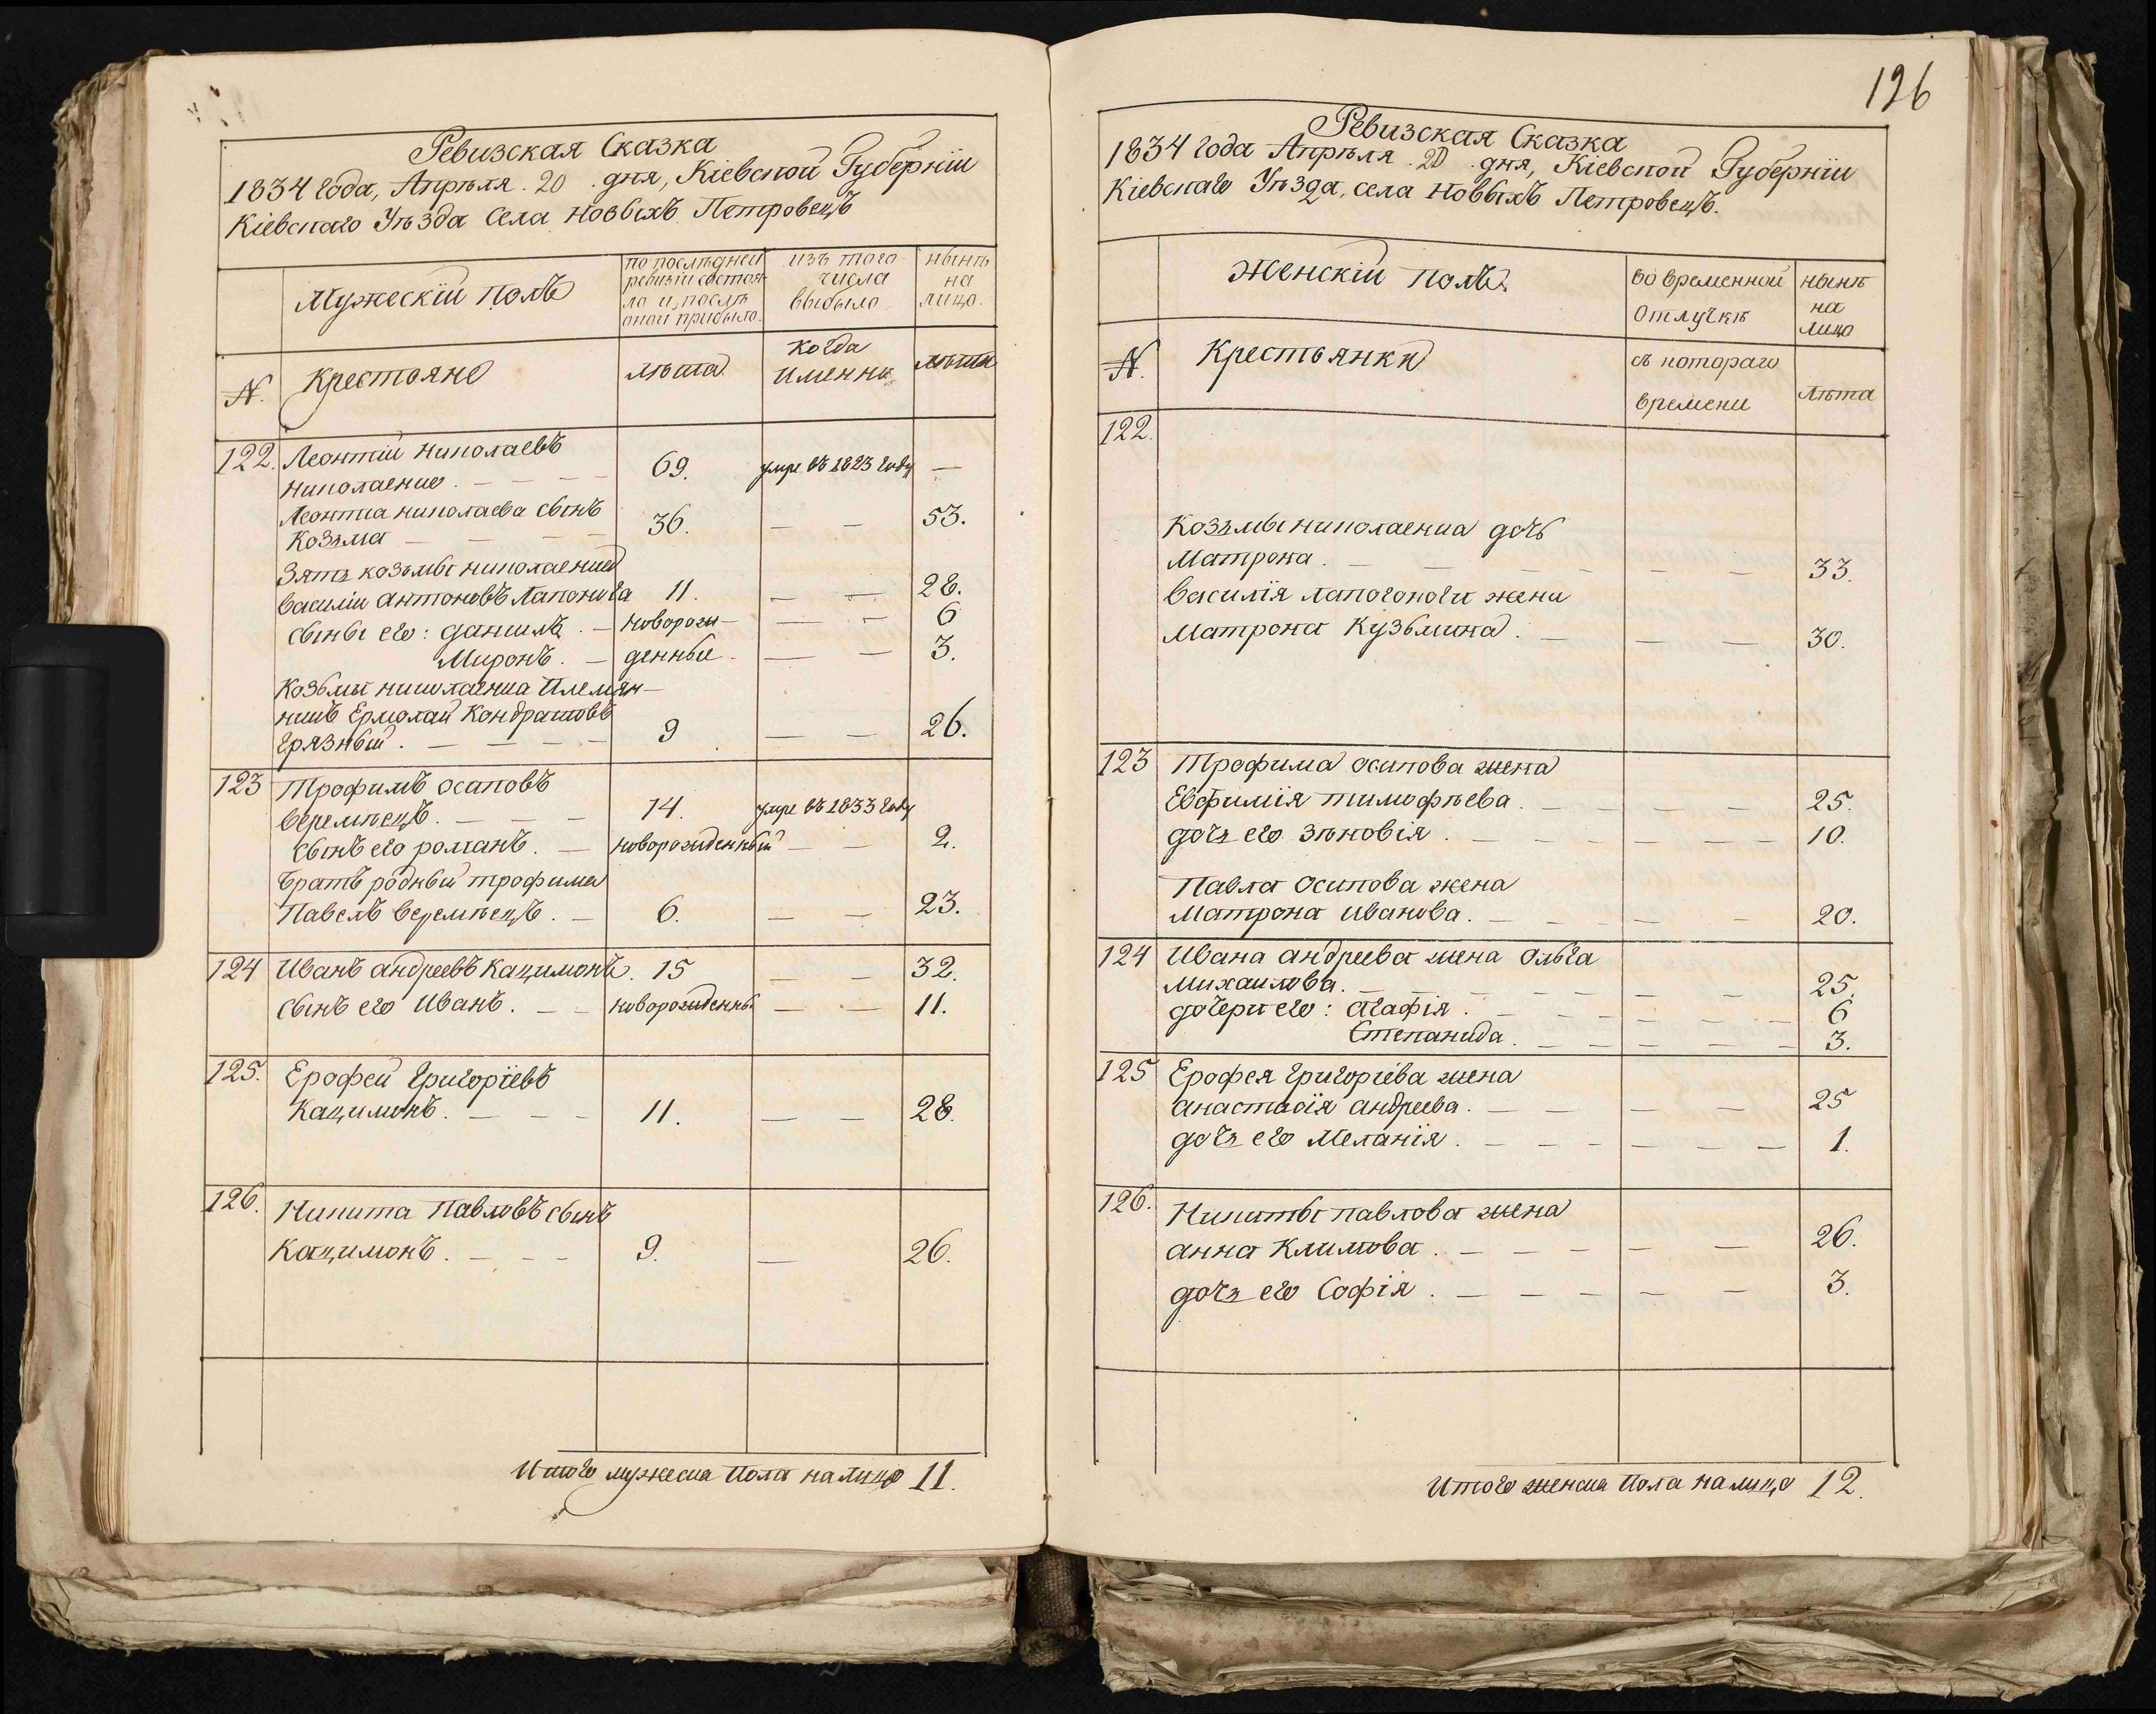 Ревизская Сказка
1834 года, Апрѣля 20 дня, Кіевской Губерніи
Кіевскаго Уѣзда Села Новыхъ Петровецъ
Мужескій полъ
по послѣдней
ревизіи состоя-
ло и, послѣ
оной прибыло.
изъ того
числа
выбыло
нынѣ
на
лицо.
№.
Крестьяне
лѣта
когда
именно
лѣта
122. Леонтій Николаевъ
Николаенко. 69. умре въ 1823 году —
Леонтіа николаева сынъ
Козьма 36. — — 53.
Зять козьмы николаенка
василій антоновъ Лапонога 11. — — 28.
сыны его: данилъ. — новорож- — — 6
Миронъ. — денные — — 3.
Козьмы николаенка племян-
никъ Ермолай Кондратовъ
Грязный. 9 — — 26.
123 Трофимъ осиповъ
веремѣецъ. 14. умре въ 1833 году
сынъ его романъ. — новорожденный — — 2.
братъ родный трофима
Павелъ веремѣецъ. — 6. — — 23.
124 Иванъ андреевъ Кацимонъ. 15 — — 32.
сынъ его иванъ. — — новорожденны. — — 11.
125. Ерофей Григоріевъ
Кацимонъ. — — — 11. — — 28.
126. Никита павловъ сынъ
Кацимонъ. — — — 9. — 26.
Итого мужеска пола налицо 11.
126
Ревизская Сказка
1834 года Апрѣля 20 дня, Кіевской Губерніи
Кіевскаго Уѣзда, села Новыхъ Петровецъ.
Женскій полъ.
во временной
отлучкѣ
нынѣ
на
лицо
№.
Крестьянки
съ котораго
времени
лѣта
122.
Козьмы николаенка дочь
Матрона. 33.
василія лапогоноги жена
Матрона Кузьмина. 30.
123 Трофима осипова жена
Евфимія тимофѣева. 25.
дочь его зѣновія. 10.
Павла осипова жена
Матрона иванова. 20.
124 Ивана андреева жена ольга
михаилова. 25.
дочери его: агафія. 6
Степанида. 3.
125 Ерофея григоріева жена
анастасія андреева. 25
дочь его Меланія. 1.
126. Никиты павлова жена
анна Климова. 26.
дочь его Софія. 3.
Итого женска пола налицо 12.